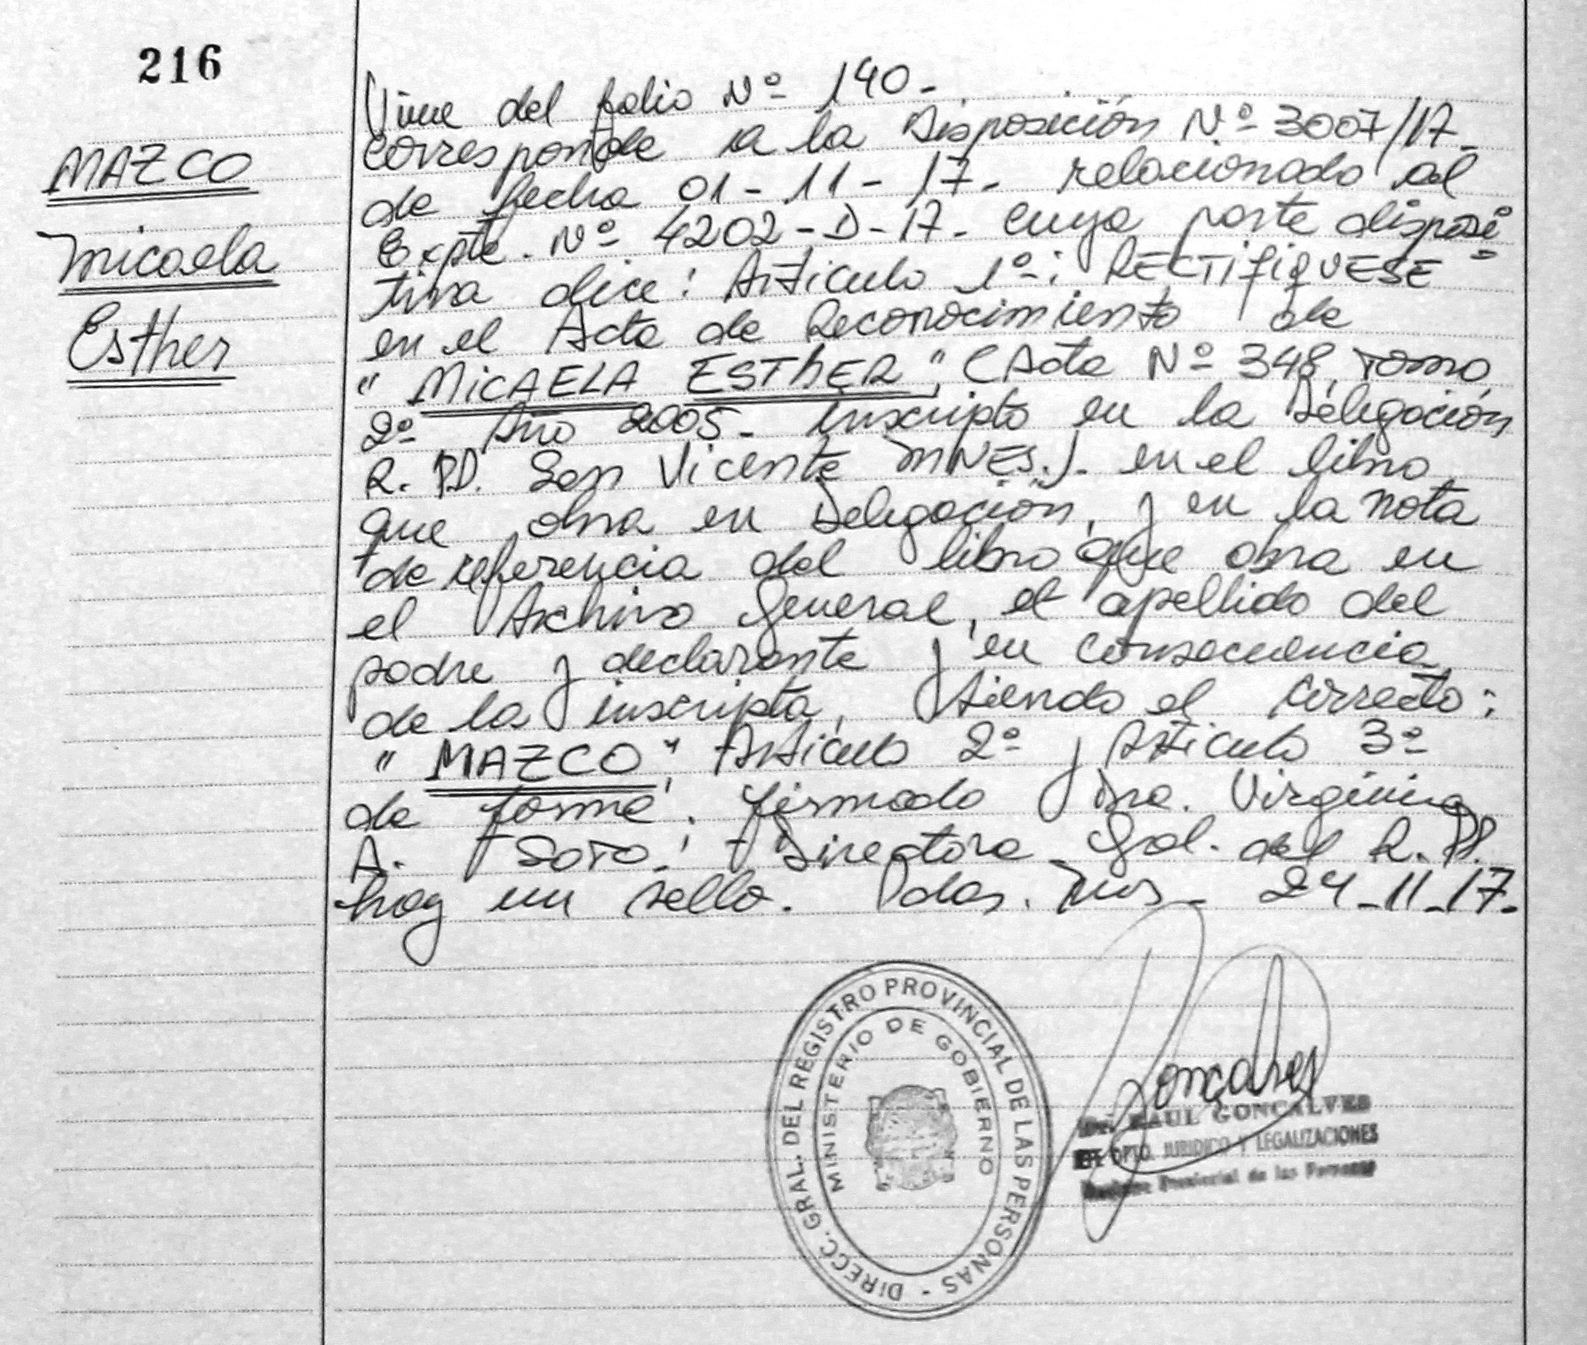 216
MAZCO
Micaela
Esther
Viene del folio Nº 140.-
Corresponde a la Disposición Nº 3007/17-
de fecha 01-11-17- relacionado al
Expte. Nº 4202-D-17- cuya parte disposi=
tiva dice: Articulo 1º: RECTIFIQUESE
en el Acta de Reconocimiento de
"MICAELA ESTHER", (Acta Nº 348, Tomo
2º Año 2005- inscripto en la Delegación
R. PP. San Vicente MNES.)- en el libro
que obra en Delegación, y en la nota
de referencia del libro que obra en
el Archivo General, el apellido del
padre y declarante y en consecuencia
de la inscripta, siendo el correcto:
"MAZCO", Articulo 2º y Articulo 3º
de forma. Firmado Dra. Virginia
A. Soto. Directora Gral. del R. PP.
hay un sello. Pdas. Mnes- 24-11-17.
DIRECC. GRAL. DEL REGISTRO PROVINCIAL DE LAS PERSONAS -
MINISTERIO DE GOBIERNO
Goncalves
Dr. RAUL GONCALVES
JEFE DPTO. JURIDICO Y LEGALIZACIONES
Registro Provincial de las Personas